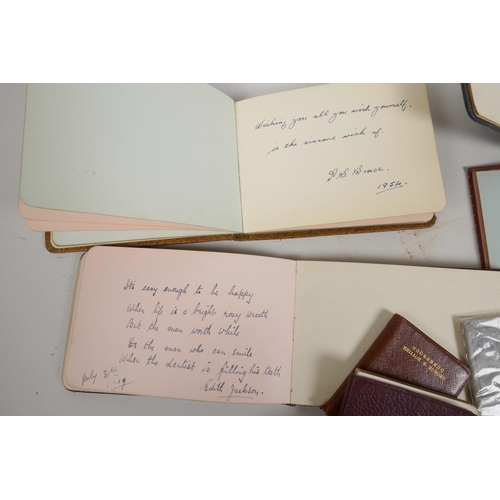 Wishing you all you wish yourself.
is the sincere wish of.
1954.
It's easy enough to be happy
When life is a bright rosy wreath
But the man worth while
Is the man who can smile
When the dentist is filling his teeth
Edith Jackson.
July 31st
1919